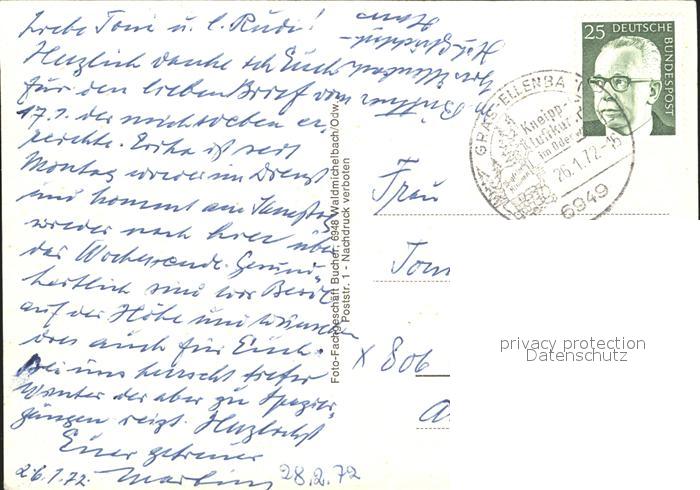 Liebe Toni u. l. Rudi!
Herzlich danke ich Euch
für den lieben Brief vom
17.1. der mich soeben er
reichte. Erika ist seit
Montag wieder im Dienst
und kommt am Samstag
wieder nach hier über
das Wochenende. Gesund-
heitlich sind wir Beide
auf der Höhe und wünschen
dies auch für Euch.
Bei uns herrscht tiefer
Winter der aber zu Spazier-
gängen reizt. Herzlichst
Euer getreuer
26.1.72. Martin
28.2.72
Foto-Fachgeschäft Bucher, 6948 Waldmichelbach/Odw.
Poststr. 1 - Nachdruck verboten
25 DEUTSCHE
BUNDESPOST
GRAS-ELLENBA
Kneipp-
Luftkur
im Odenw
26.1.72-16
6949
Frau
Ton
x 806
privacy protection
Datenschutz